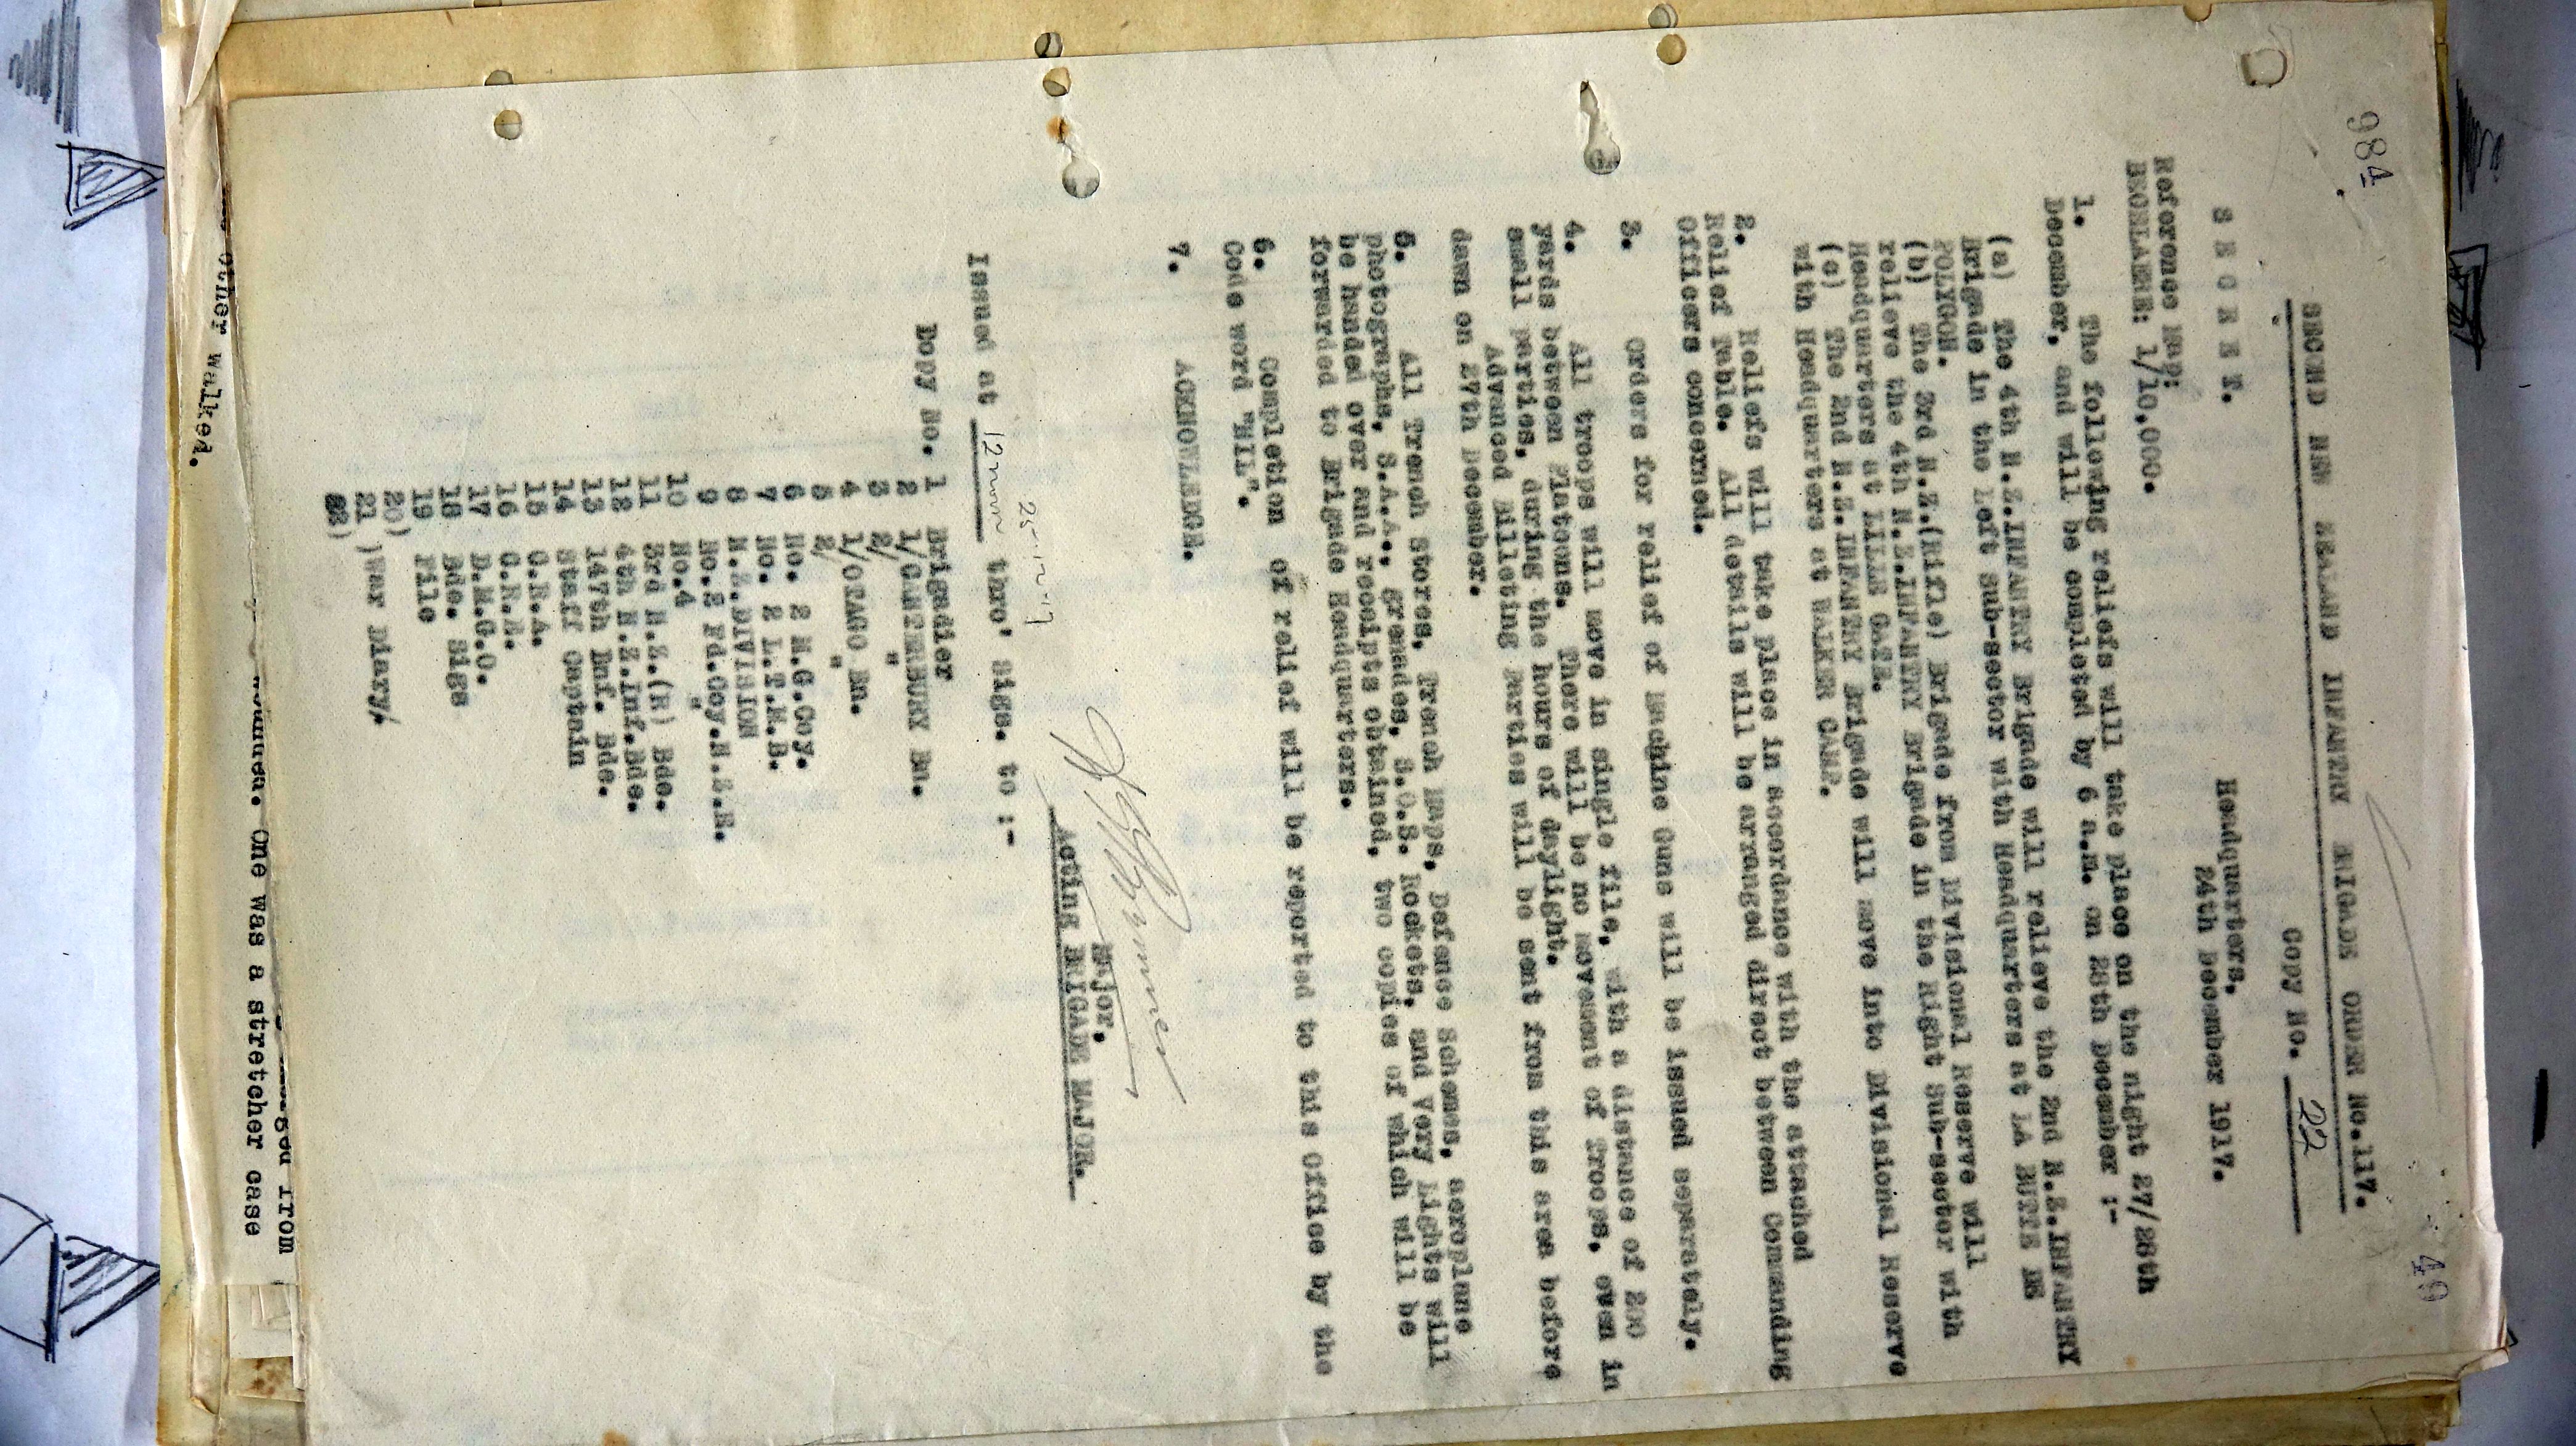 984
49
SECOND NEW ZEALAND INFANTRY BRIGADE ORDER No.117.
Copy No. 22
S E C R E T.
Headquarters,
24th December 1917.
Reference Map:
BECELAERE: 1/10,000.
1. The following reliefs will take place on the night 27/28th
December, and will be completed by 6 a.m. on 28th December :-
(a) The 4th N.Z.INFANTRY Brigade will relieve the 2nd N.Z.INFANTRY
Brigade in the Left Sub-sector with Headquarters at LA BUTTE DE
POLYGON.
(b) The 3rd N.Z.(Rifle) Brigade from Divisional Reserve will
relieve the 4th N.Z.INFANTRY Brigade in the Right Sub-sector with
Headquarters at LILLE GATE.
(c) The 2nd N.Z.INFANTRY Brigade will move into Divisional Reserve
with Headquarters at WALKER CAMP.
2. Reliefs will take place in accordance with the attached
Relief Table. All details will be arranged direct between Commanding
Officers concerned.
3. Orders for relief of Machine Guns will be issued separately.
4. All troops will move in single file, with a distance of 200
yards between Platoons. There will be no movement of Troops, even in
small parties, during the hours of daylight.
Advanced Billeting Parties will be sent from this area before
dawn on 27th December.
5. All Trench Stores, Trench Maps, Defence Schemes, aeroplane
photographs, S.A.A., grenades, S.O.S. Rockets, and Very Lights will
be handed over and receipts obtained, two copies of which will be
forwarded to Brigade Headquarters.
6. Completion of relief will be reported to this Office by the
Code word "HILL".
7. ACKNOWLEDGE.
Major,
Acting BRIGADE MAJOR.
25-12-17
Issued at 12 noon thro' Sigs. to :-
Copy No. 1 Brigadier
2 1/CANTERBURY Bn.
3 2/ "
4 1/OTAGO Bn.
5 2/ "
6 No. 2 M.G.Coy.
7 No. 2 L.T.M.B.
8 N.Z.DIVISION
9 No.2 Fd.Coy.N.Z.E.
10 No.4 "
11 3rd N.Z.(R) Bde.
12 4th N.Z.Inf.Bde.
13 147th Inf. Bde.
14 Staff Captain
15 C.R.A.
16 C.R.E.
17 D.M.G.O.
18 Bde. Sigs
19 File
20)
21 )War Diary,
22)
from
One was a stretcher case
other walked.